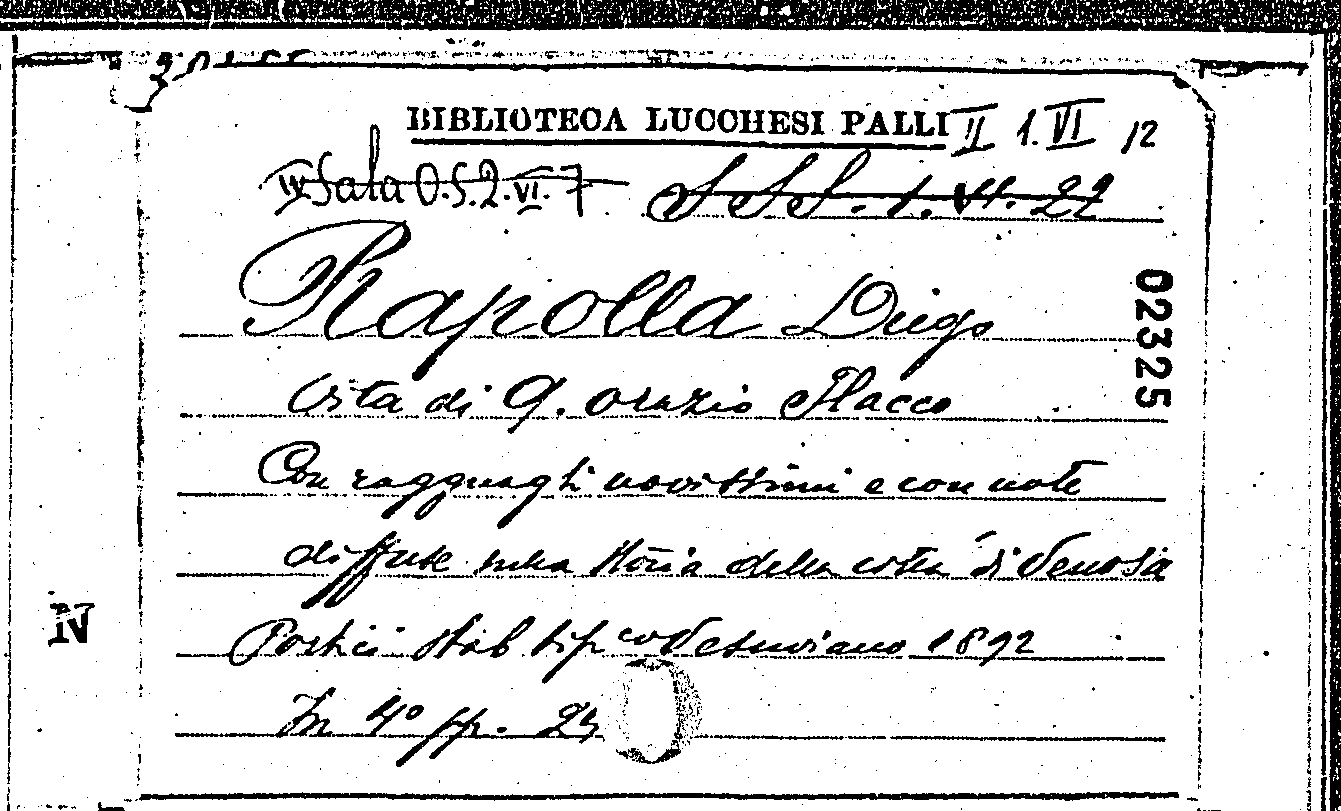 BIBLIOTECA LUCCHESI PALLI II 1. VI 12
IV Sala O.S.2.VI.7 S S S. 1. VI. 22
Rapolla Diego
Vita di Q. Orazio Flacco
Con ragguagli novissimi e con note
diffuse sulla storia della città di Venosa
Portici Stab tip co Vesuviano 1892
In 4º pp. 24
02325
N